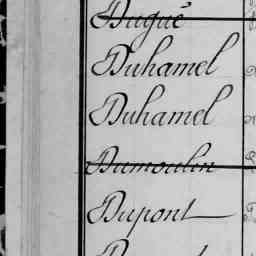 Dugué
Duhamel
Duhamel
Dumoulin
Dupont